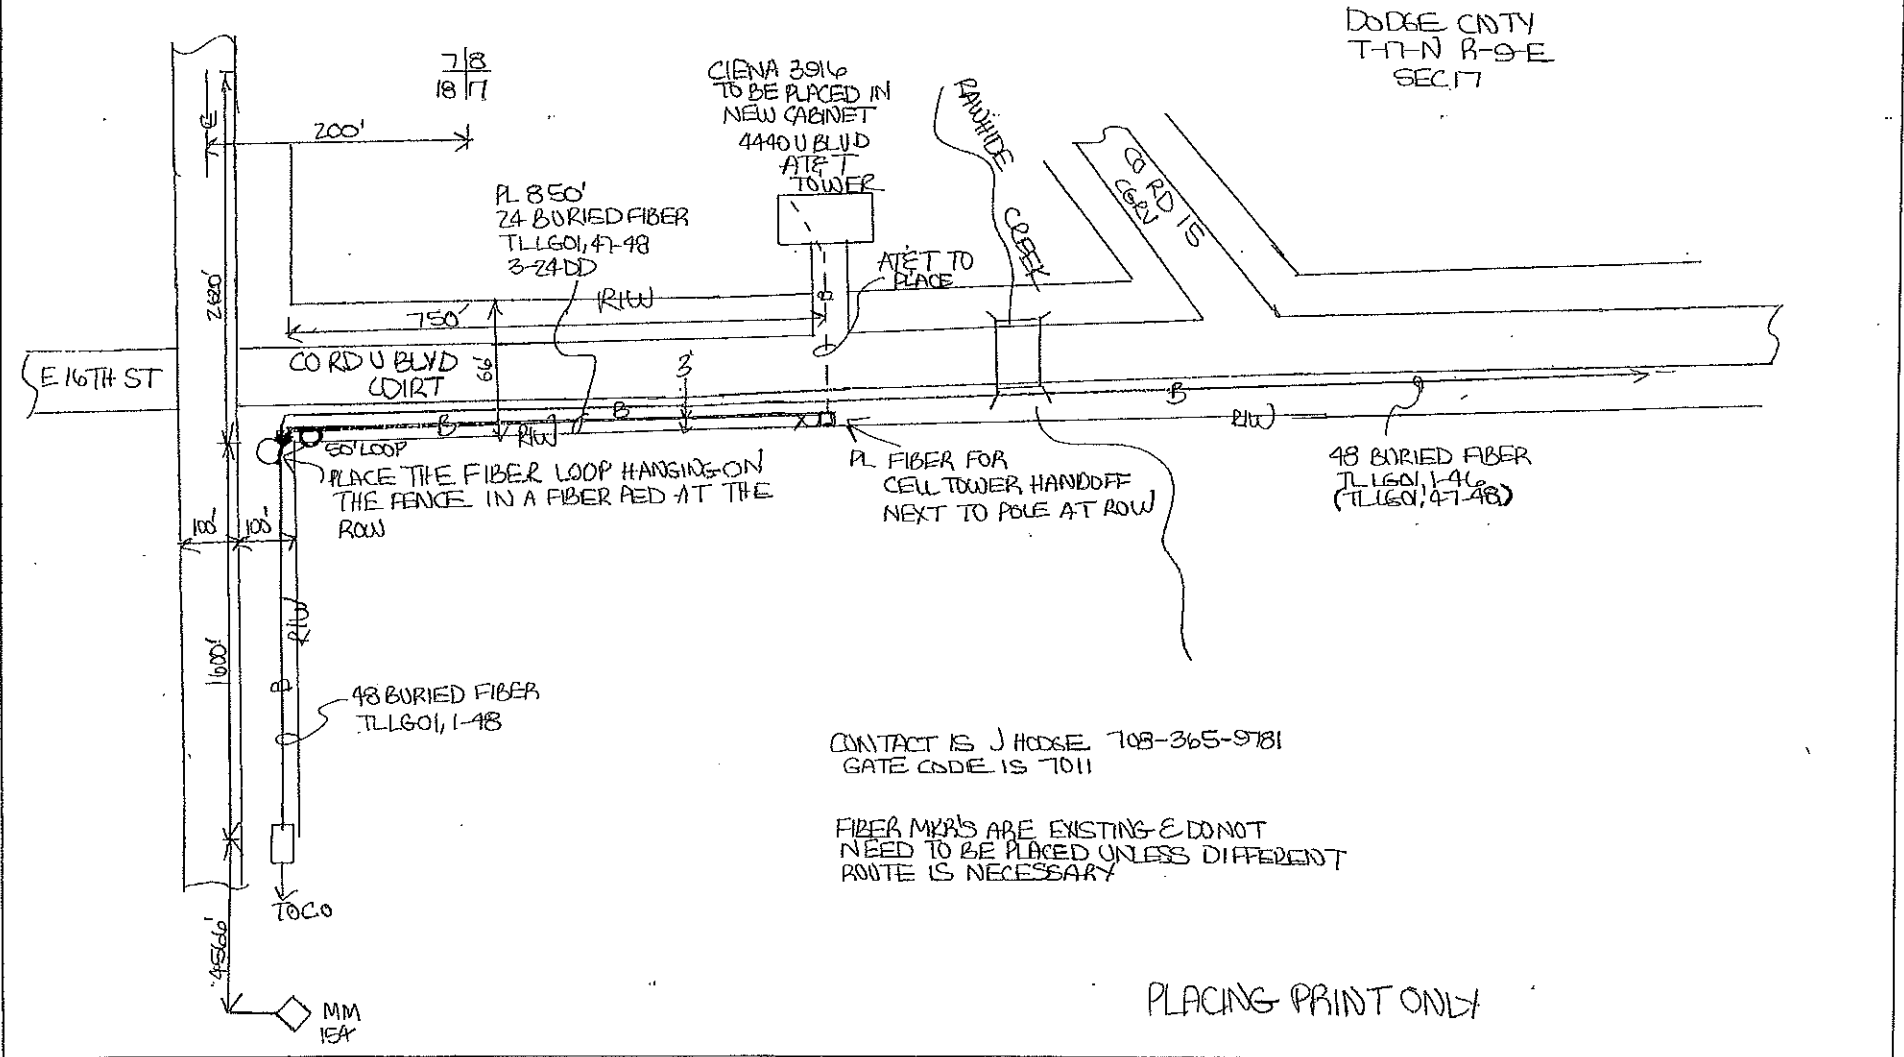 DODGE CNTY
T-17-N R-9-E
SEC.17
7|8
18|17
200'
CIENA 3916
TO BE PLACED IN
NEW CABINET
4440 U BLVD
AT&T
TOWER
RAWHIDE
CREEK
CO RD 15
PL 850'
24 BURIED FIBER
TLLG01,47-48
3-24DD
AT&T TO
PLACE
R/W
750'
66'
3'
B
E 16TH ST
CO RD U BLVD
B
B
R/W
B
R/W
50' LOOP
PLACE THE FIBER LOOP HANGING ON
THE FENCE IN A FIBER PED AT THE
ROW
PL FIBER FOR
CELL TOWER HANDOFF
NEXT TO POLE AT ROW
48 BURIED FIBER
TLLG01,1-46
(TLLG01,47-48)
100'
100'
R/W
1600'
B
48 BURIED FIBER
TLLG01,1-48
CONTACT IS J HODGE 708-365-9781
GATE CODE IS 7011
FIBER MKR'S ARE EXISTING & DO NOT
NEED TO BE PLACED UNLESS DIFFERENT
ROUTE IS NECESSARY
TO CO
4566'
MM
154
PLACING PRINT ONLY